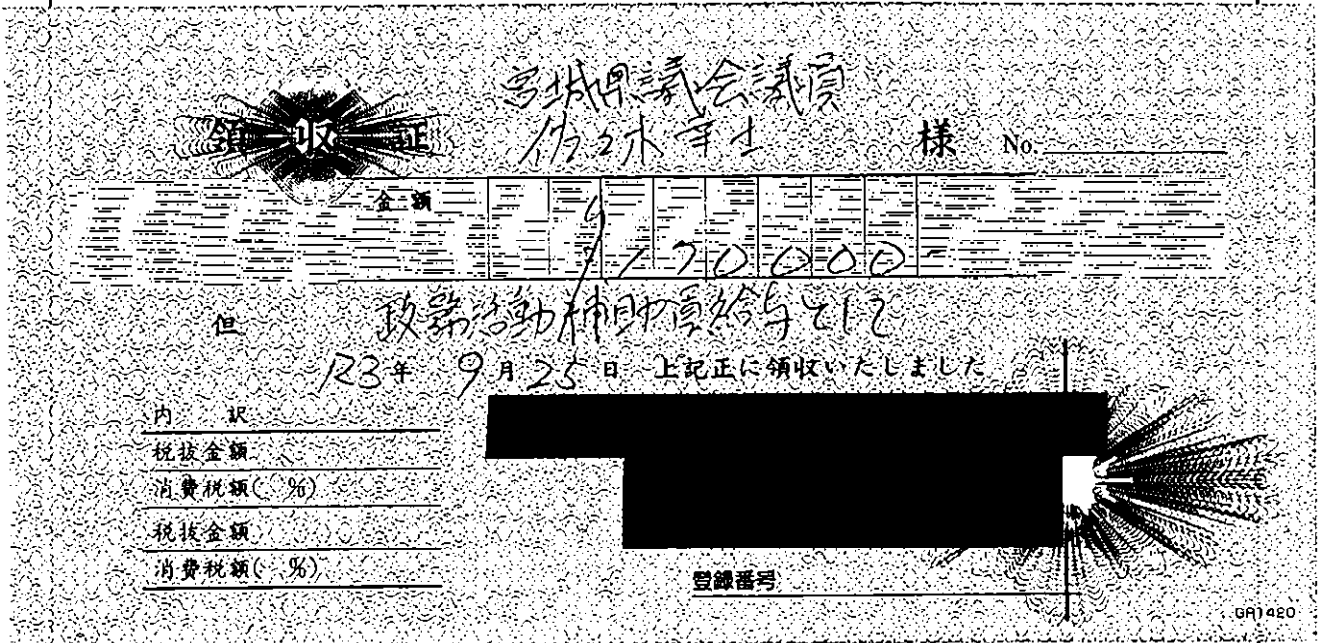 宮城県議会議員
領収証
佐々木幸士 様 No.
金額
¥170000-
但 政務活動補助員給与として
'23年 9月25日 上記正に領収いたしました
内 訳
税抜金額
消費税額( %)
税抜金額
消費税額( %)
登録番号
GR1420